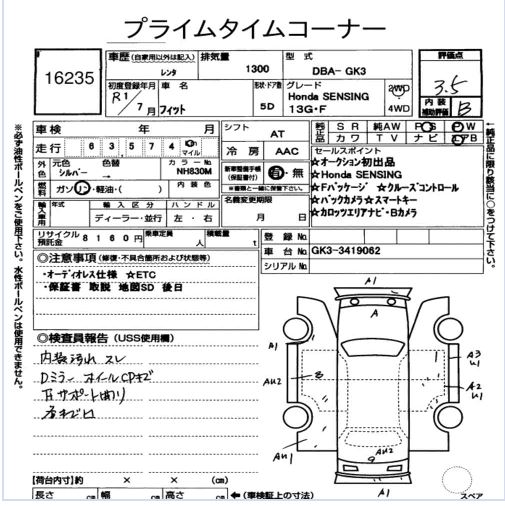 プライムタイムコーナー
16235
車歴 (自家用以外は記入) 排気量 型式
レンタ 1300 DBA- GK3
初度登録年月 車名 形状・ドア数 グレード
R1/7月 フィット 5D Honda SENSING
13G・F
2WD
4WD
評価点
3.5
内装補助評価 B
車検 年 月 シフト AT
走行 63574 km マイル 冷房 AAC
外色 元色 色替 カラーNo.
シルバー NH830M
燃料 ガソリン・軽油・( ) 内装色
新車整備手帳(保証書付) 有・無
※書類と一緒に保管下さい。
輸入車用 年式 輸入区分 ハンドル
ディーラー・並行 左・右
名義変更期限
月 日
リサイクル預託金 8160円 乗車定員 人 積載量 t
純正品 SR 純AW PS PW
純正品 カワ TV ナビ エアB
セールスポイント
★オークション初出品
★Honda SENSING
★Fパッケージ ★クルーズコントロール
★バックカメラ★スマートキー
★カロッツエリアナビ・Bカメラ
登録No.
車台No. GK3-3419062
シリアルNo.
※必ず油性ボールペンをご使用下さい。水性ボールペンは使用できません。
←純正品に限り該当に○をつけて下さい。
◎注意事項 (修復・不具合箇所および状態等)
・オーディオレス仕様 ★ETC
・保証書 取説 地図SD 後日
◎検査員報告 (USS使用欄)
内装汚れ スレ
Dミラー ホイールCPキズ
A1
A
A1
AU2
B
A3
U1
A2
U1
AU1
AU1
A1
スペア
【荷台内寸】約 × × (cm)
長さ cm 幅 cm 高さ cm ←(車検証上の寸法)